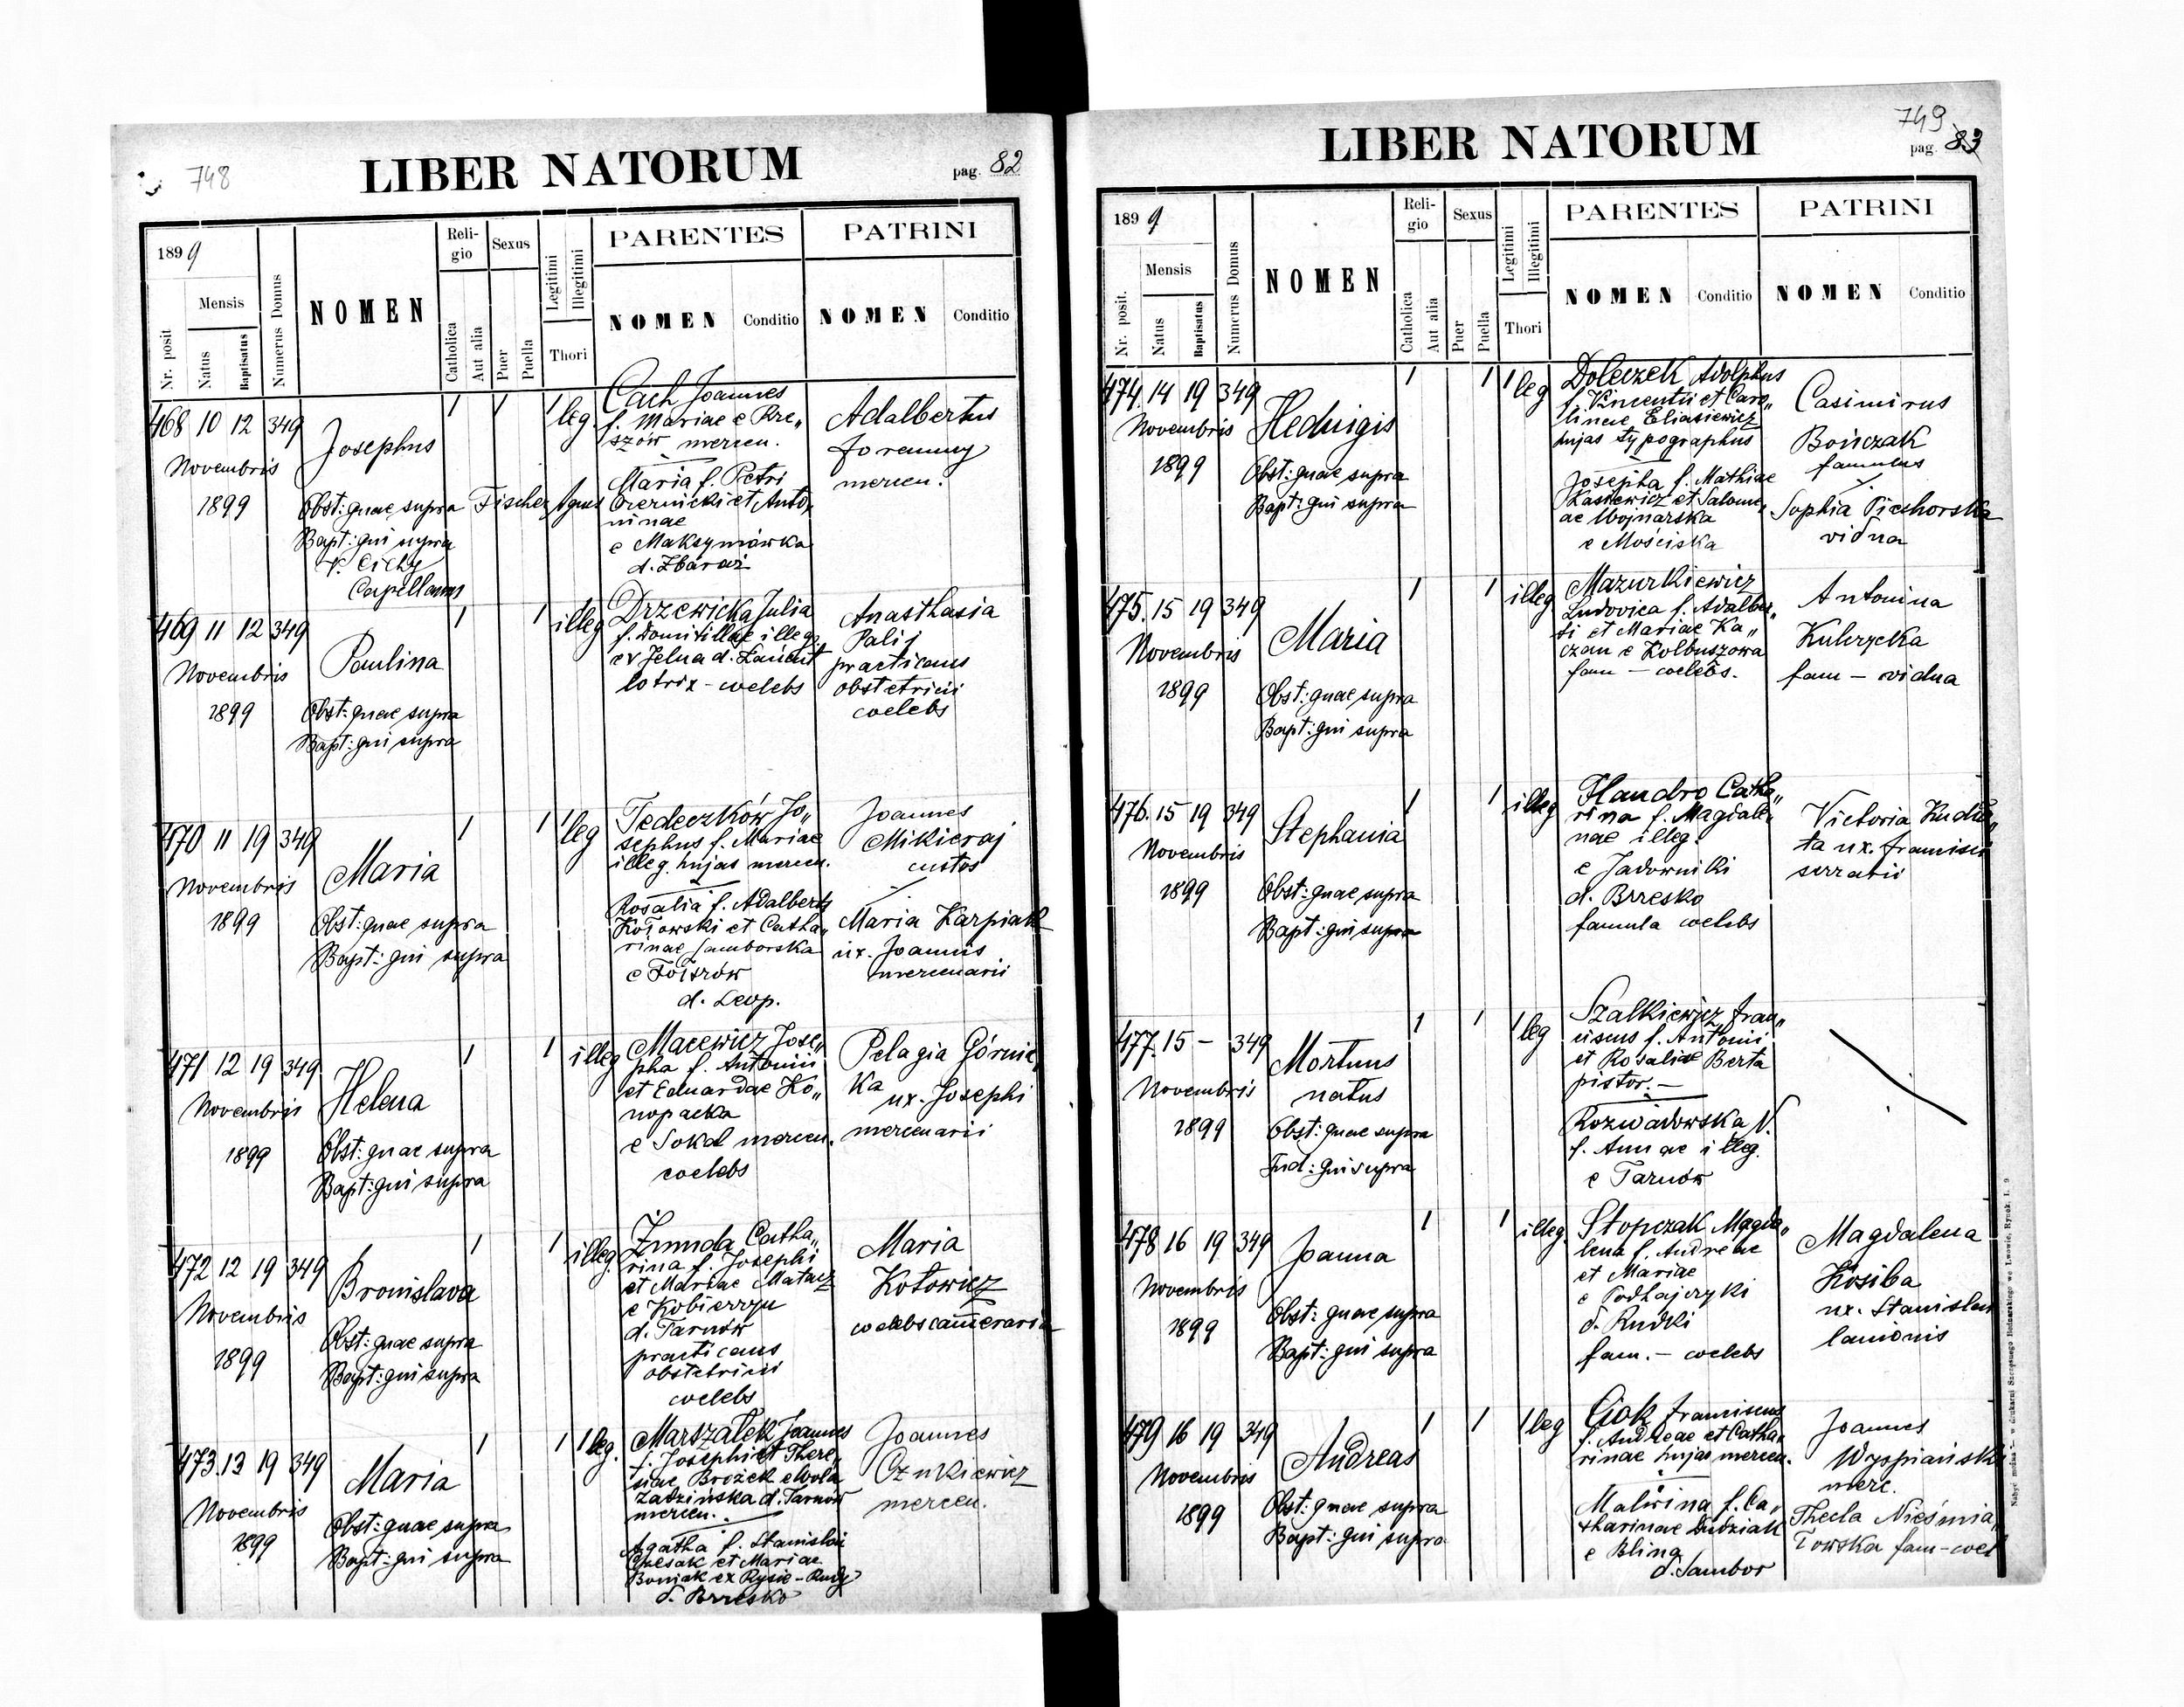 748
LIBER NATORUM
pag. 82
1899
Mensis
Nr. posit
Natus
Baptisatus
Numerus Domus
NOMEN
Religio
Catholica
Aut alia
Sexus
Puer
Puella
Legitimi
Illegitimi
Thori
PARENTES
NOMEN
Conditio
PATRINI
NOMEN
Conditio
468 10 12 349
Novembris
1899
Josephus
Obst: quae supra Fischer Agnes
Bapt: qui supra
Cichy
Capellanus
1 1 1 leg.
Cach Joannes
f. Mariae e Rze„
szów mercen.
Maria f. Petri
Czernicki et Anto„
ninae
e Maksymówka
d. Zbaraż
Adalbertus
Foremny
mercen.
469 11 12 349
Novembris
1899
Paulina
Obst: quae supra
Bapt: qui supra
1 1 illeg
Drzewicka Julia
f. Domitillae illeg.
ex Jelna d. Łańcut
lotrix - coelebs
Anasthasia
Palij
practicans
obstetricii
coelebs
470 11 19 349
Novembris
1899
Maria
Obst: quae supra
Bapt: qui supra
1 1 1 leg
Tedeczków Jo„
sephus f. Mariae
illeg. hujas mercen.
Rosalia f. Adalberti
Kotowski et Catha„
rinae Jamborska
e
d. Leop.
Joannes
Mikieraj
custos
Maria Karpiak
ux. Joannis
mercenarii
471 12 19 349
Novembris
1899
Helena
Obst: quae supra
Bapt: qui supra
1 1 illeg
Macewicz Jose„
pha f. Antonii
et Eduardae Ko„
nopacka
e Sokal mercen.
coelebs
Pelagia Górnic„
ka
ux. Josephi
mercenarii
472 12 19 349
Novembris
1899
Bronislava
Obst: quae supra
Bapt: qui supra
1 1 illeg.
Żmuda Catha„
rina f. Josephi
et Mariae Matacz
e Kobierzyn
d. Tarnów
practicans
obstetricii
coelebs
Maria
Kotowicz
coelebs cameraria
473. 13 19 349
Novembris
1899
Maria
Obst: quae supra
Bapt: qui supra
1 1 1 leg.
Marszałek Joannes
f. Josephi et There„
siae Brożek e Wola
d. Tarnów
mercen.
Agatha f. Stanislai
et Mariae
Boniak ex Rysie-Rudy
d. Brzesko
Joannes
Cznkiewicz
mercen.
749
LIBER NATORUM
pag. 83
1899
Mensis
Nr. posit.
Natus
Baptisatus
Numerus Domus
NOMEN
Religio
Catholica
Aut alia
Sexus
Puer
Puella
Legitimi
Illegitimi
Thori
PARENTES
NOMEN
Conditio
PATRINI
NOMEN
Conditio
474. 14 19 349
Novembris
1899
Hedvigis
Obst: quae supra
Bapt: qui supra
1 1 1 leg
Doleczek Adolphus
f. Vincentii et Caro„
linae Eliasiewicz
hujas typographus
Josepha f. Mathiae
Kasiewicz et Salome„
ae Wojnarska
e Mościska
Casimirus
Bończak
famulus
Sophia Piechorska
vidua
475. 15 19 349
Novembris
1899
Maria
Obst: quae supra
Bapt: qui supra
1 1 illeg
Mazurkiewicz
Ludovica f. Adalber„
ti et Mariae Ka„
czan e Kolbuszowa
fam - coelebs.
Antonina
Kulczycka
fam - vidua
476. 15 19 349
Novembris
1899
Stephania
Obst: quae supra
Bapt: qui supra
1 1 illeg
Handro Catha„
rina f. Magdale„
nae illeg.
e Jadowniki
d. Brzesko
famula coelebs
Victoria Kudła„
ta ux. Francisci
serratii
477. 15 - 349
Novembris
1899
Mortuus
natus
Obst: quae supra
Ind: qui supra
1 1 1 leg
Szalkiewicz Fran„
ciscus f. Antonii
et Rosaliae Berta
pistor. -
Rozwadowska V.
f. Annae illeg.
e Tarnów
478 16 19 349
Novembris
1899
Joanna
Obst: quae supra
Bapt: qui supra
1 1 illeg.
Stopczak Magda„
lena f. Andreae
et Mariae
e Podhajczyki
d. Rudki
fam. - coelebs
Magdalena
Kosiba
ux. Stanislai
lanionis
479 16 19 349
Novembris
1899
Andreas
Obst: quae supra
Bapt: qui supra
1 1 1 leg
Franciscus
f. Andreae et Catha„
rinae hujas mercen.
Malwina f. Ca„
tharinae Dudziak
e
d. Sambor
Joannes
Wyspiański
merc.
Thecla Nieśmia„
łowska fam - coel